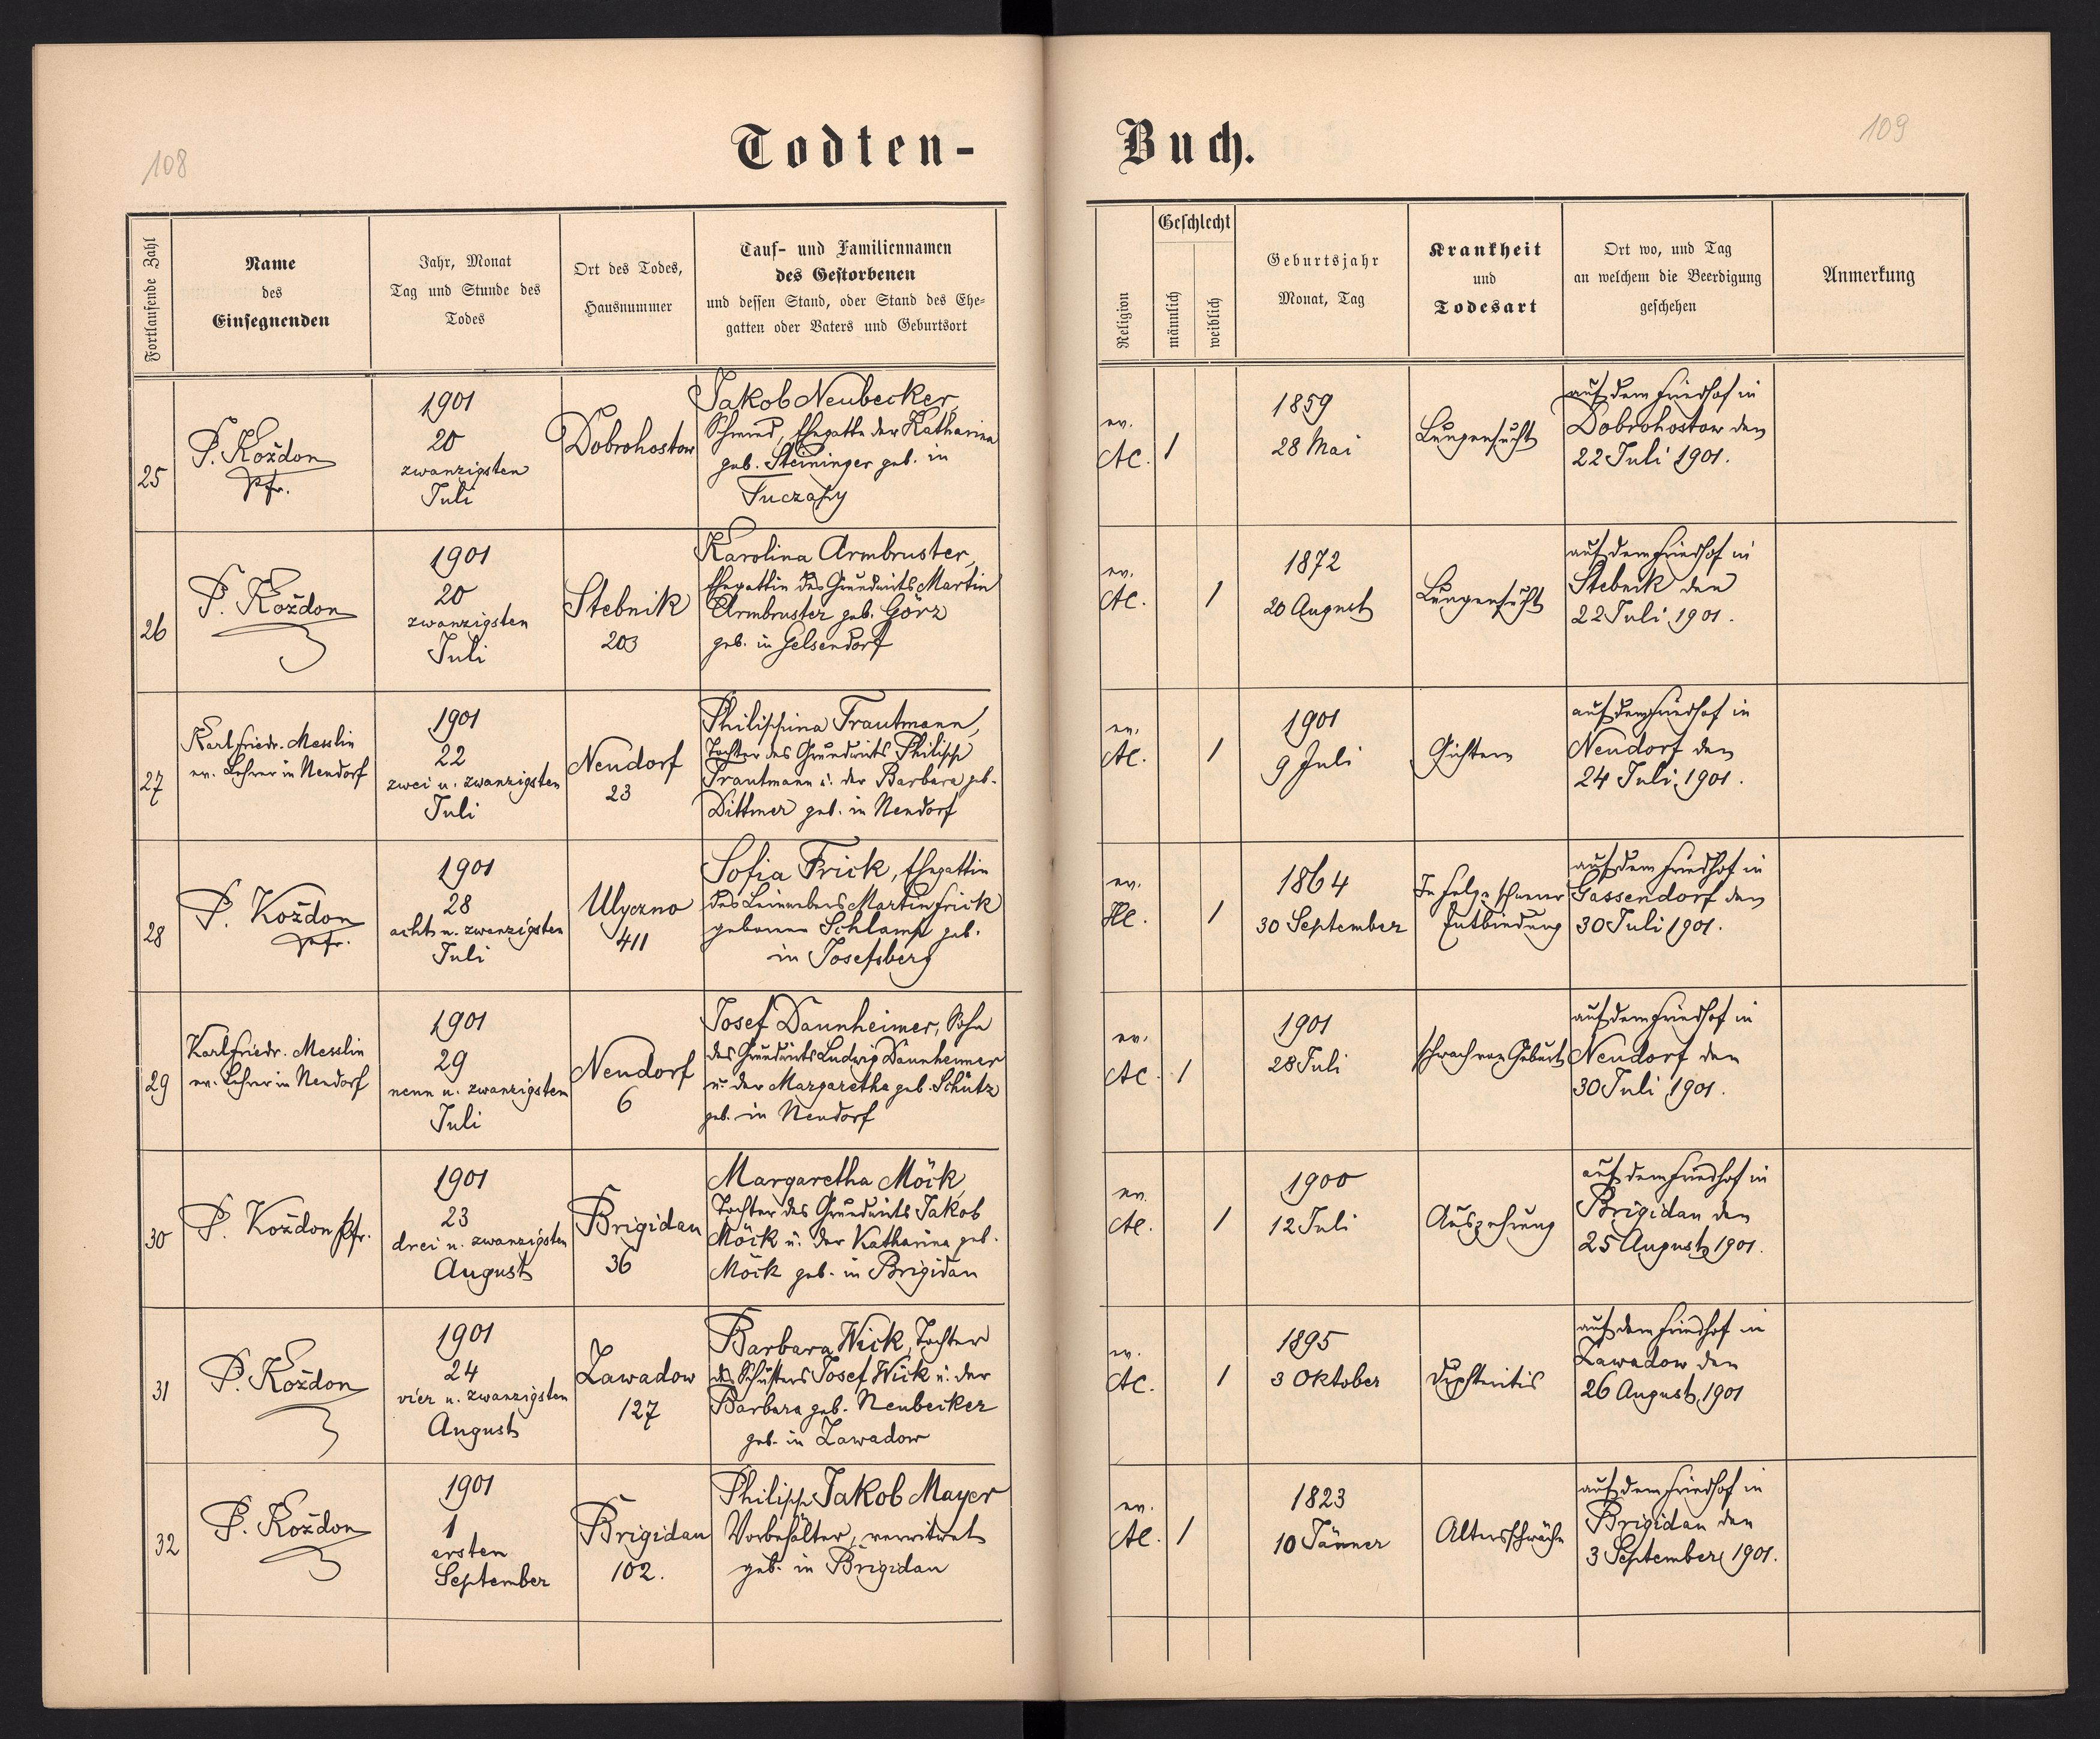 108
Todten-
Buch.
109
Fortlaufende Zahl
Name
des
Einsegnenden
Jahr, Monat
Tag und Stunde des
Todes
Ort des Todes,
Hausnummer
Tauf- und Familiennamen
des Gestorbenen
und dessen Stand, oder Stand des Ehe-
gatten oder Vaters und Geburtsort
Religion
Geschlecht
männlich
weiblich
Geburtsjahr
Monat, Tag
Krankheit
und
Todesart
Ort wo, und Tag
an welchem die Beerdigung
geschehen
Anmerkung
25
P. Koždon
Pfr.
1901
20
zwanzigsten
Juli
Dobrohostow
Jakob Neubecker,
Schmied, Ehegatte der Katharina
geb. Steininger geb. in
Tuczapy
ev.
AC.
1
1859
28 Mai
Lungensucht
auf dem Friedhof in
Dobrohostow den
22 Juli 1901.
26
P. Koždon
1901
20
zwanzigsten
Juli
Stebnik
203
Karolina Armbruster,
Ehegattin des Grundwirts Martin
Armbruster geb. Görz
geb. in Gelsendorf
ev.
AC.
1
1872
20 August
Lungensucht
auf dem Friedhof in
Stebnik den
22 Juli 1901.
27
Karl Friedr. Messlin
ev. Lehrer in Neudorf
1901
22
zwei u. zwanzigsten
Juli
Neudorf
23
Philippina Trautmann,
Tochter des Grundwirts Philipp
Trautmann u. der Barbara geb.
Dittmer geb. in Neudorf
ev.
AC.
1
1901
9 Juli
Gichtern
auf dem Friedhof in
Neudorf den
24 Juli 1901.
28
P. Koždon
Pfr.
1901
28
acht u. zwanzigsten
Juli
Ulyczno
411
Sofia Frick, Ehegattin
des Leinwebers Martin Frick
geborene Schlamp geb.
in Josefsberg
ev.
HC.
1
1864
30 September
In Folge schwerer
Entbindung
auf dem Friedhof in
Gassendorf den
30 Juli 1901.
29
Karl Friedr. Messlin
ev. Lehrer in Neudorf
1901
29
neun u. zwanzigsten
Juli
Neudorf
6
Josef Daunheimer, Sohn
des Grundwirts Ludwig Daunheimer
u. der Margaretha geb. Schütz
geb. in Neudorf
ev.
AC.
1
1901
28 Juli
schwach von Geburt
auf dem Friedhof in
Neudorf den
30 Juli 1901.
30
P. Koždon Pfr.
1901
23
drei u. zwanzigsten
August
Brigidau
36
Margaretha Möck,
Tochter des Grundwirts Jakob
Möck u. der Katharina geb.
Möck geb. in Brigidau
ev.
AC.
1
1900
12 Juli
Auszehrung
auf dem Friedhof in
Brigidau den
25 August 1901.
31
P. Koždon
1901
24
vier u. zwanzigsten
August
Zawadow
127
Barbara Wick, Tochter
des Schusters Josef Wick u. der
Barbara geb. Neubecker
geb. in Zawadow
ev.
AC.
1
1895
3 Oktober
Diphteritis
auf dem Friedhof in
Zawadow den
26 August 1901
32
P. Koždon
1901
1
ersten
September
Brigidau
102.
Philipp Jakob Mayer
Vorbehälter, verwitwet
geb. in Brigidau
ev.
AC.
1
1823
10 Jänner
Altersschwäche
auf dem Friedhof in
Brigidau den
3 September 1901.